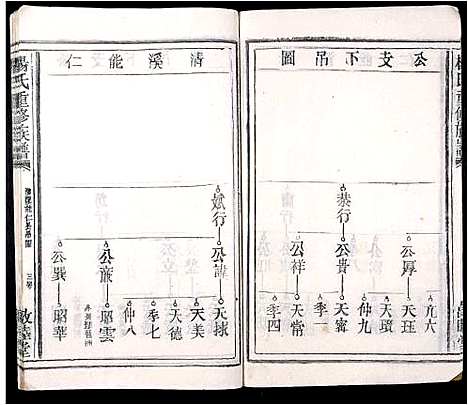 公支下吊圖
恭行
公厚
公貴
公祥
亢六
天珏
天璸
仲九
天寗
季一
天常
季四
清溪能仁
斌行
公諱
公薰
公巽
天球
天美
天德
季七
仲八
昭雲
昭華
楊氏重修族譜
敦睦堂